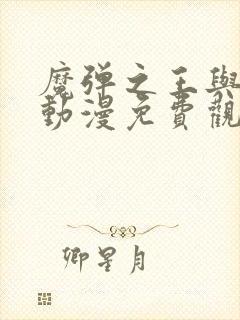 魔弹之王與
動漫免費觀
卿星月